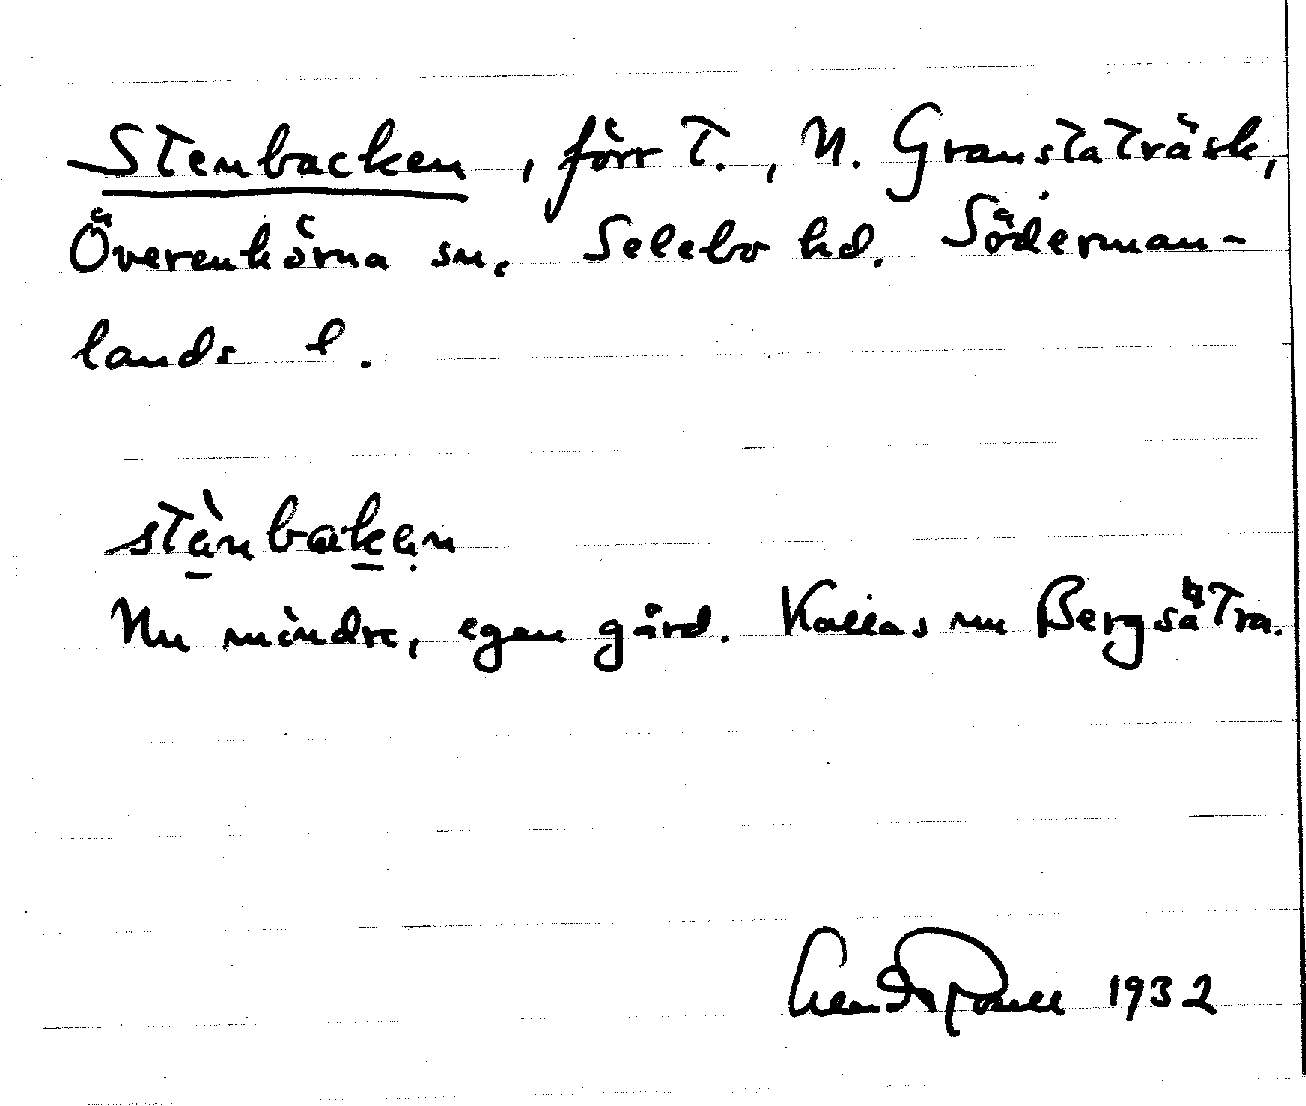 Stenbacken, förr T., N. Granstaträsk,
Överenhörna sn, Selebo hd. Söderman-
lands l.
stànbakan
Nu mindre, egen gård. Kallas nu Bergsätra.
1932